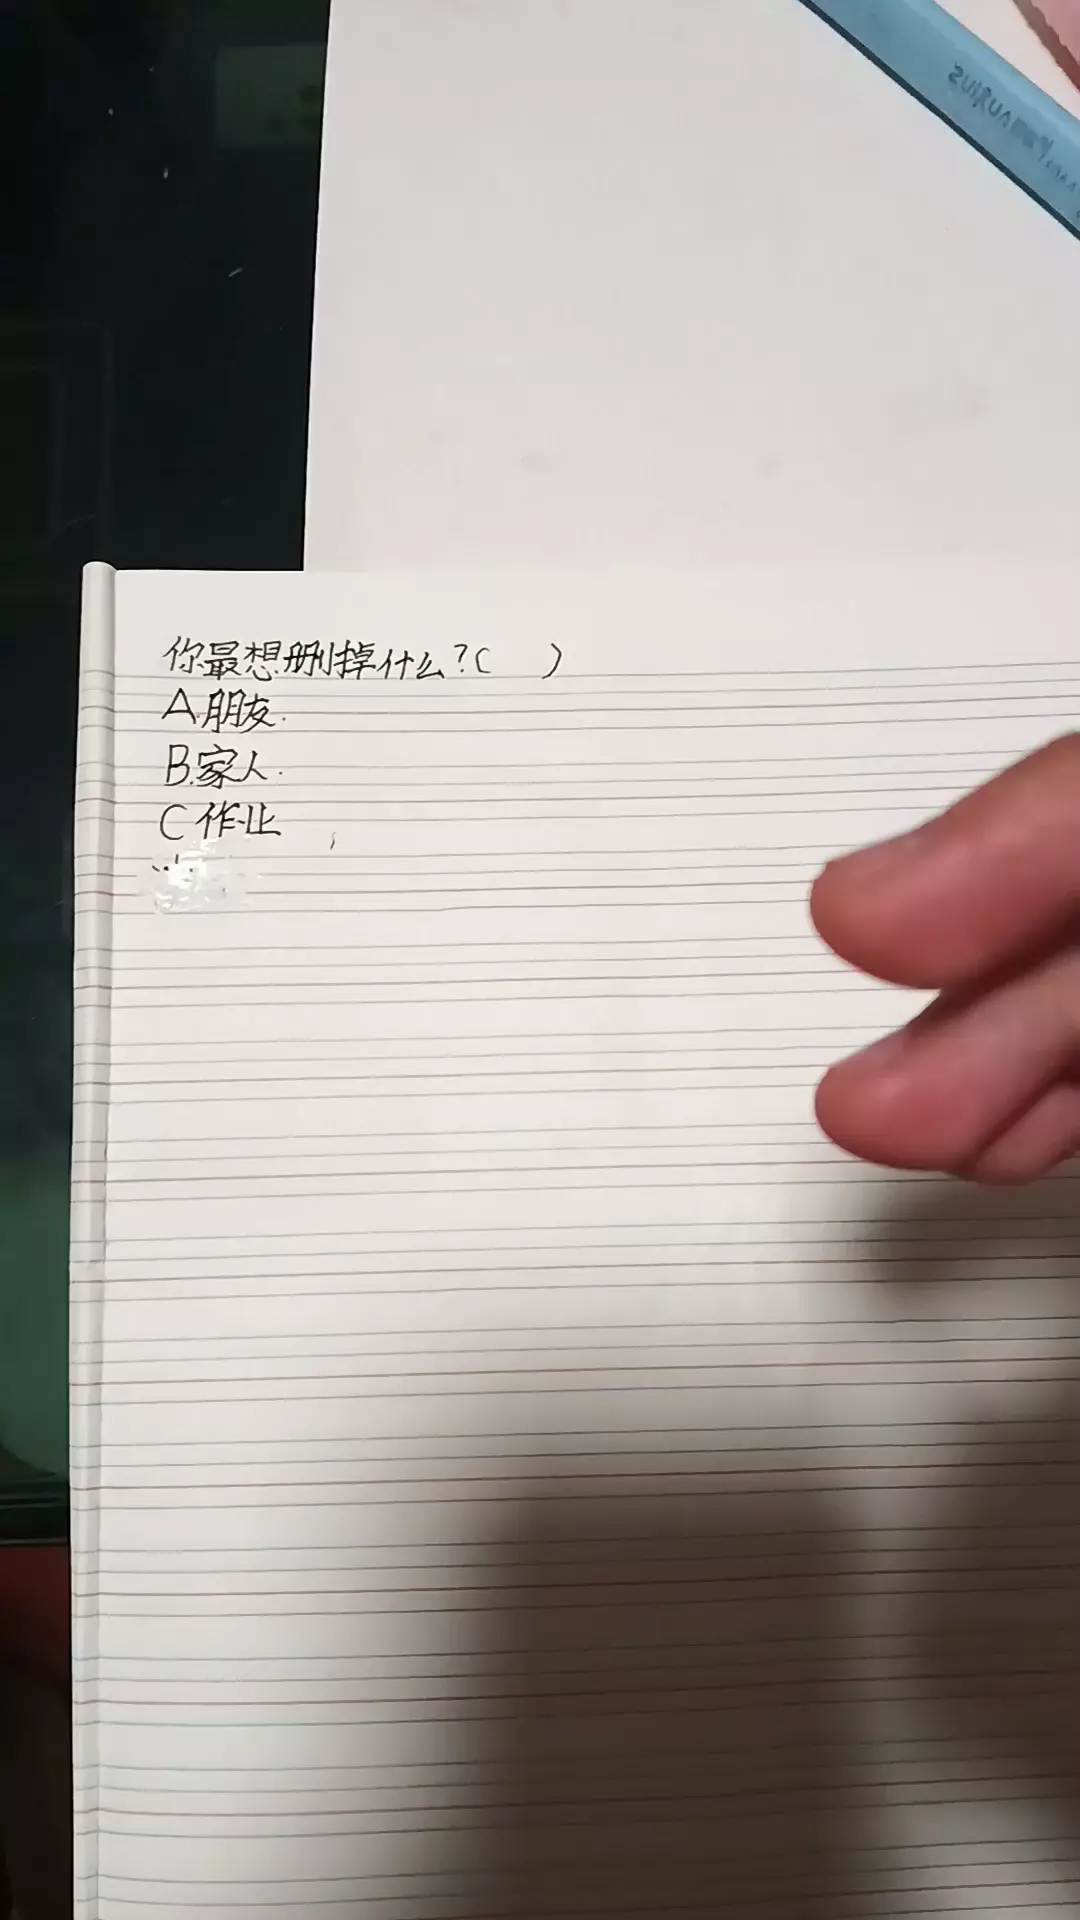 你最想删掉什么?( )
A.朋友.
B.家人.
C 作业